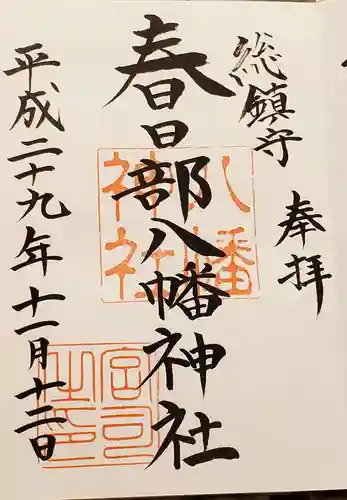 奉拝
総鎮守
春日部八幡神社
八幡神社
宮司之印
平成二十九年十一月十二日